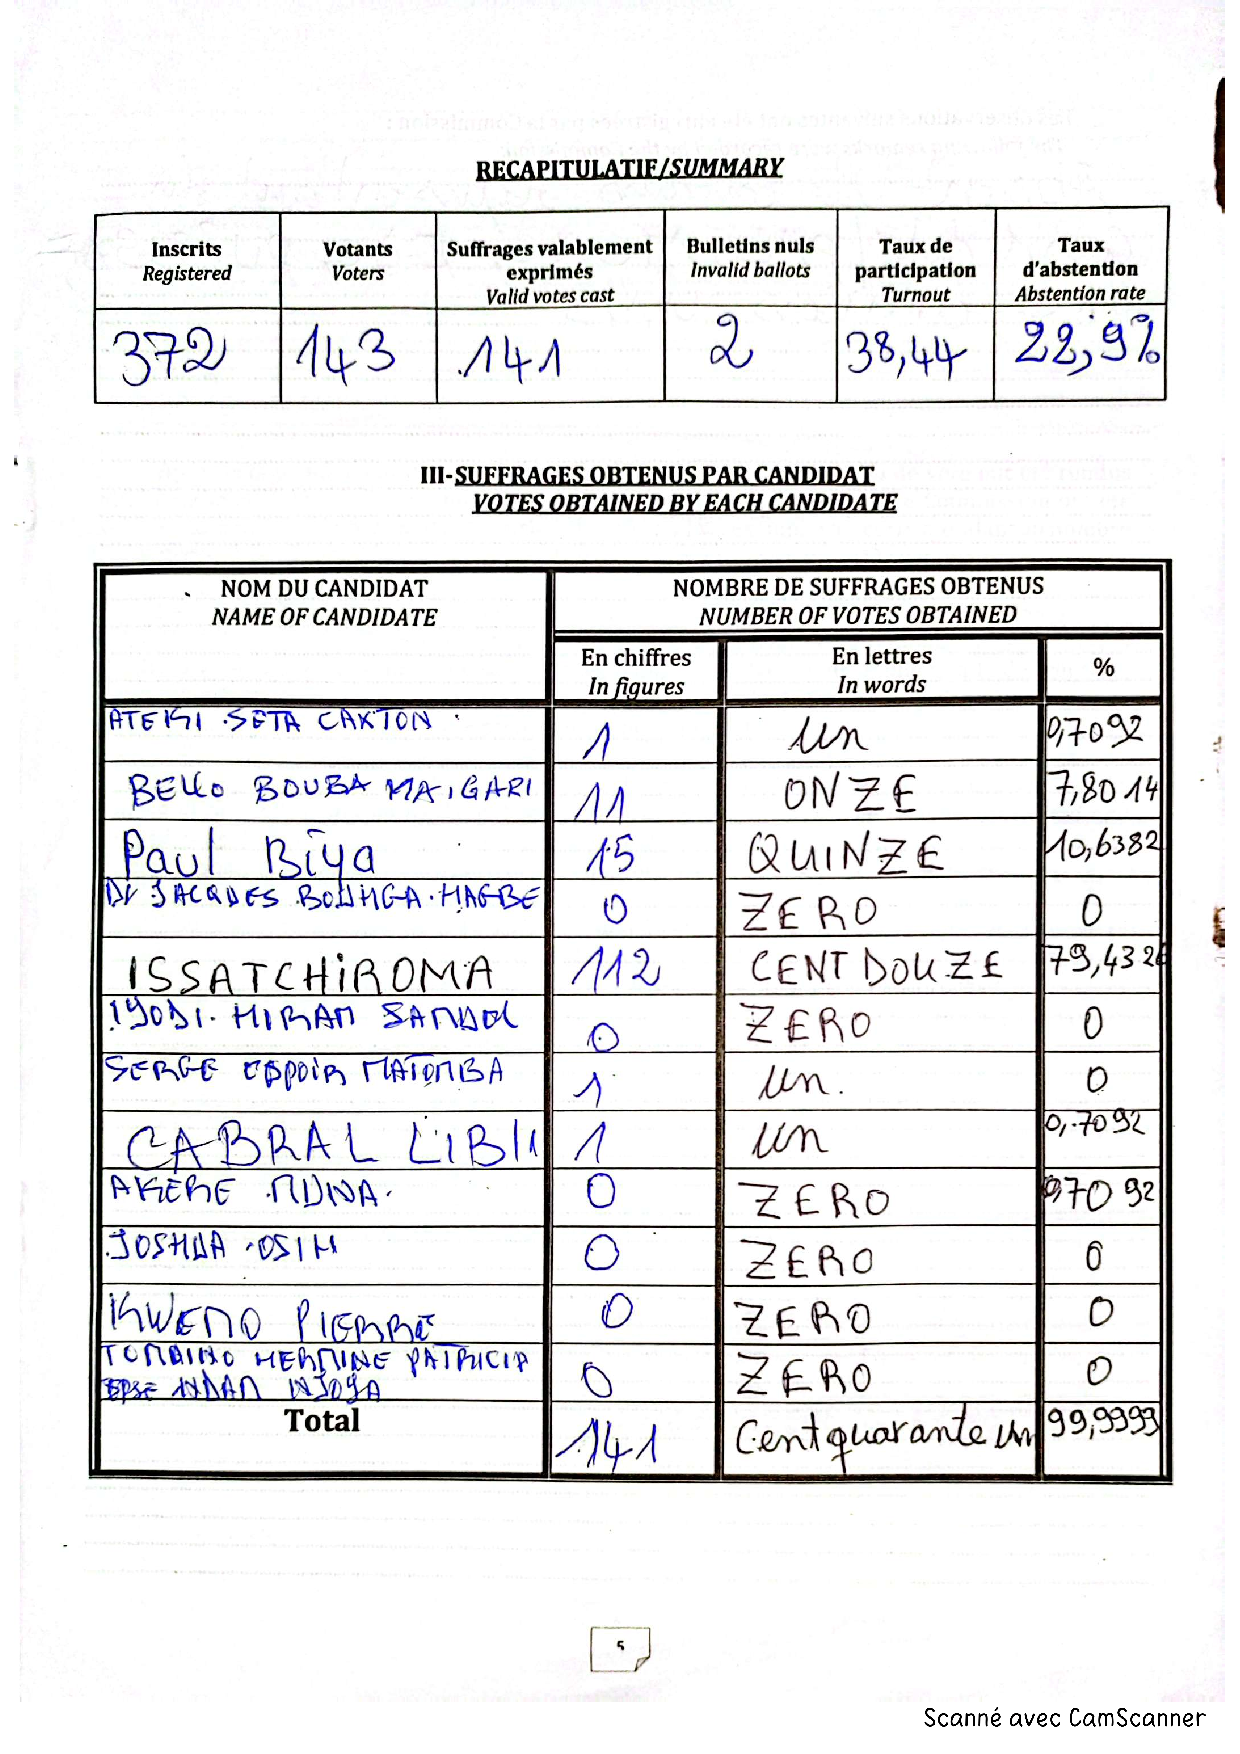 RECAPITULATIF/SUMMARY
Inscrits
Registered
Votants
Voters
Suffrages valablement
exprimés
Valid votes cast
Bulletins nuls
Invalid ballots
Taux de
participation
Turnout
Taux
d'abstention
Abstention rate
372
143
141
2
38,44
22,9%
III-SUFFRAGES OBTENUS PAR CANDIDAT
VOTES OBTAINED BY EACH CANDIDATE
NOM DU CANDIDAT
NAME OF CANDIDATE
NOMBRE DE SUFFRAGES OBTENUS
NUMBER OF VOTES OBTAINED
En chiffres
In figures
En lettres
In words
%
ATEKI SETA CAXTON 1 un 0,7092
BELLO BOUBA MAIGARI 11 ONZE 7,8014
Paul Biya 15 QUINZE 10,6382
Dr JACQUES BOUHGA-HAGBE 0 ZERO 0
ISSATCHIROMA 112 CENT DOUZE 79,4326
IYODI HIRAM SAMUEL 0 ZERO 0
SERGE ESPOIR MATOMBA 1 un. 0
CABRAL LIBII 1 un 0,7092
AKERE MUNA 0 ZERO 0,7092
JOSHUA OSIH 0 ZERO 0
KWEMO PIERRE 0 ZERO 0
TOMAINO HERMINE PATRICIA
EPSE NDAM NJOYA 0 ZERO 0
Total 141 Cent quarante un 99,9993
5
Scanné avec CamScanner